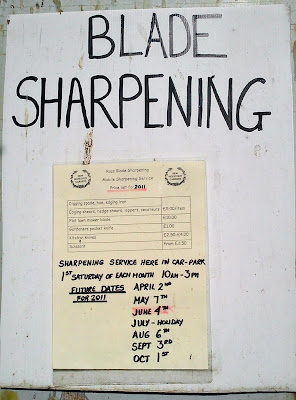 BLADE
SHARPENING
Blade Sharpening
Mobile Sharpening Service
Price list for 2011
Digging spade, hoe, edging iron
Edging shears, hedge shears, loppers, secateurs £5.00/item
Flat lawn mower blade £6.00
Gardeners pocket knife £1.00
Kitchen knives £2.50-£4.00
Scissors From £2.50
SHARPENING SERVICE HERE IN CAR-PARK
1ST SATURDAY OF EACH MONTH 10AM-3PM
FUTURE DATES APRIL 2ND
FOR 2011 MAY 7TH
JUNE 4TH
JULY-HOLIDAY
AUG 6TH
SEPT 3RD
OCT 1ST